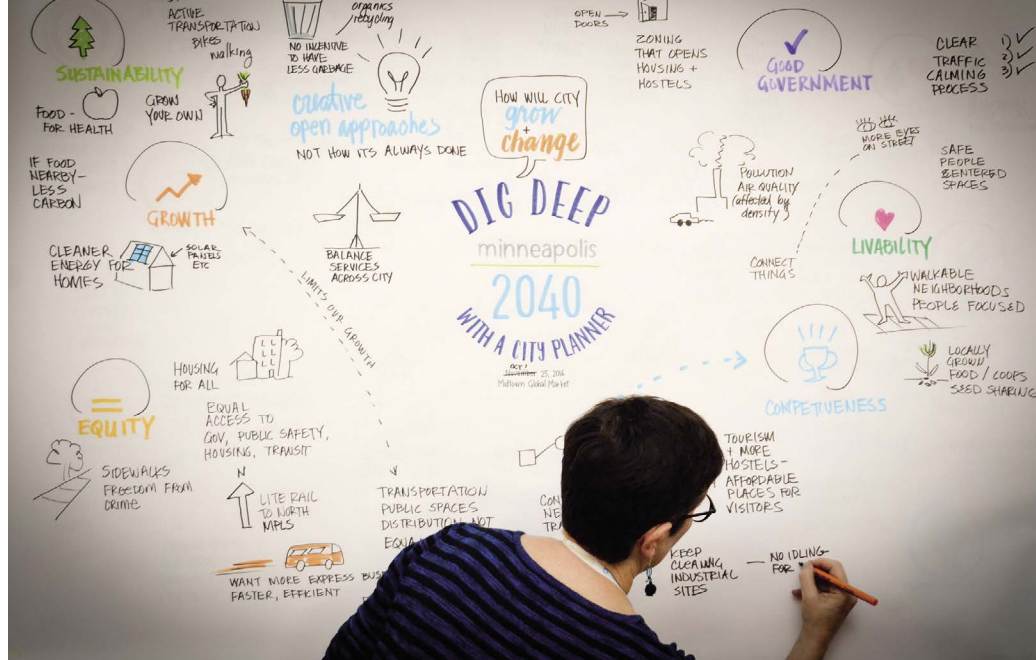 ACTIVE
TRANSPORTATION
BIKES
walking
SUSTAINABILITY
FOOD -
FOR HEALTH
GROW
YOUR OWN
IF FOOD
NEARBY-
LESS
CARBON
GROWTH
CLEANER
ENERGY FOR
HOMES
SOLAR
PANELS
ETC
organics
recycling
NO INCENTIVE
TO HAVE
LESS GARBAGE
creative
open approaches
NOT HOW ITS ALWAYS DONE
BALANCE
SERVICES
ACROSS CITY
LIMITS OUR GROWTH
HOW WILL CITY
grow
+
change
DIG DEEP
minneapolis
2040
WITH A CITY PLANNER
OCT 1
November 25, 2016
Midtown Global Market
OPEN
DOORS
ZONING
THAT OPENS
HOUSING +
HOSTELS
GOOD
GOVERNMENT
CLEAR 1)
TRAFFIC 2)
CALMING 3)
PROCESS
MORE EYES
ON STREET
SAFE
PEOPLE
CENTERED
SPACES
POLLUTION
AIR QUALITY
(affected by
density)
CONNECT
THINGS
LIVABILITY
WALKABLE
NEIGHBORHOODS
PEOPLE FOCUSED
LOCALLY
GROWN
FOOD / COOPS
SEED SHARING
COMPETIVENESS
HOUSING
FOR ALL
EQUITY
EQUAL
ACCESS TO
GOV, PUBLIC SAFETY,
HOUSING, TRANSIT
SIDEWALKS
FREEDOM FROM
crime
N
LITE RAIL
TO NORTH
MPLS
WANT MORE EXPRESS BUS
FASTER, EFFICIENT
TRANSPORTATION
PUBLIC SPACES
DISTRIBUTION NOT
TOURISM
+ MORE
HOSTELS-
AFFORDABLE
PLACES FOR
VISITORS
KEEP
CLEANING
INDUSTRIAL
SITES
NO IDLING
FOR